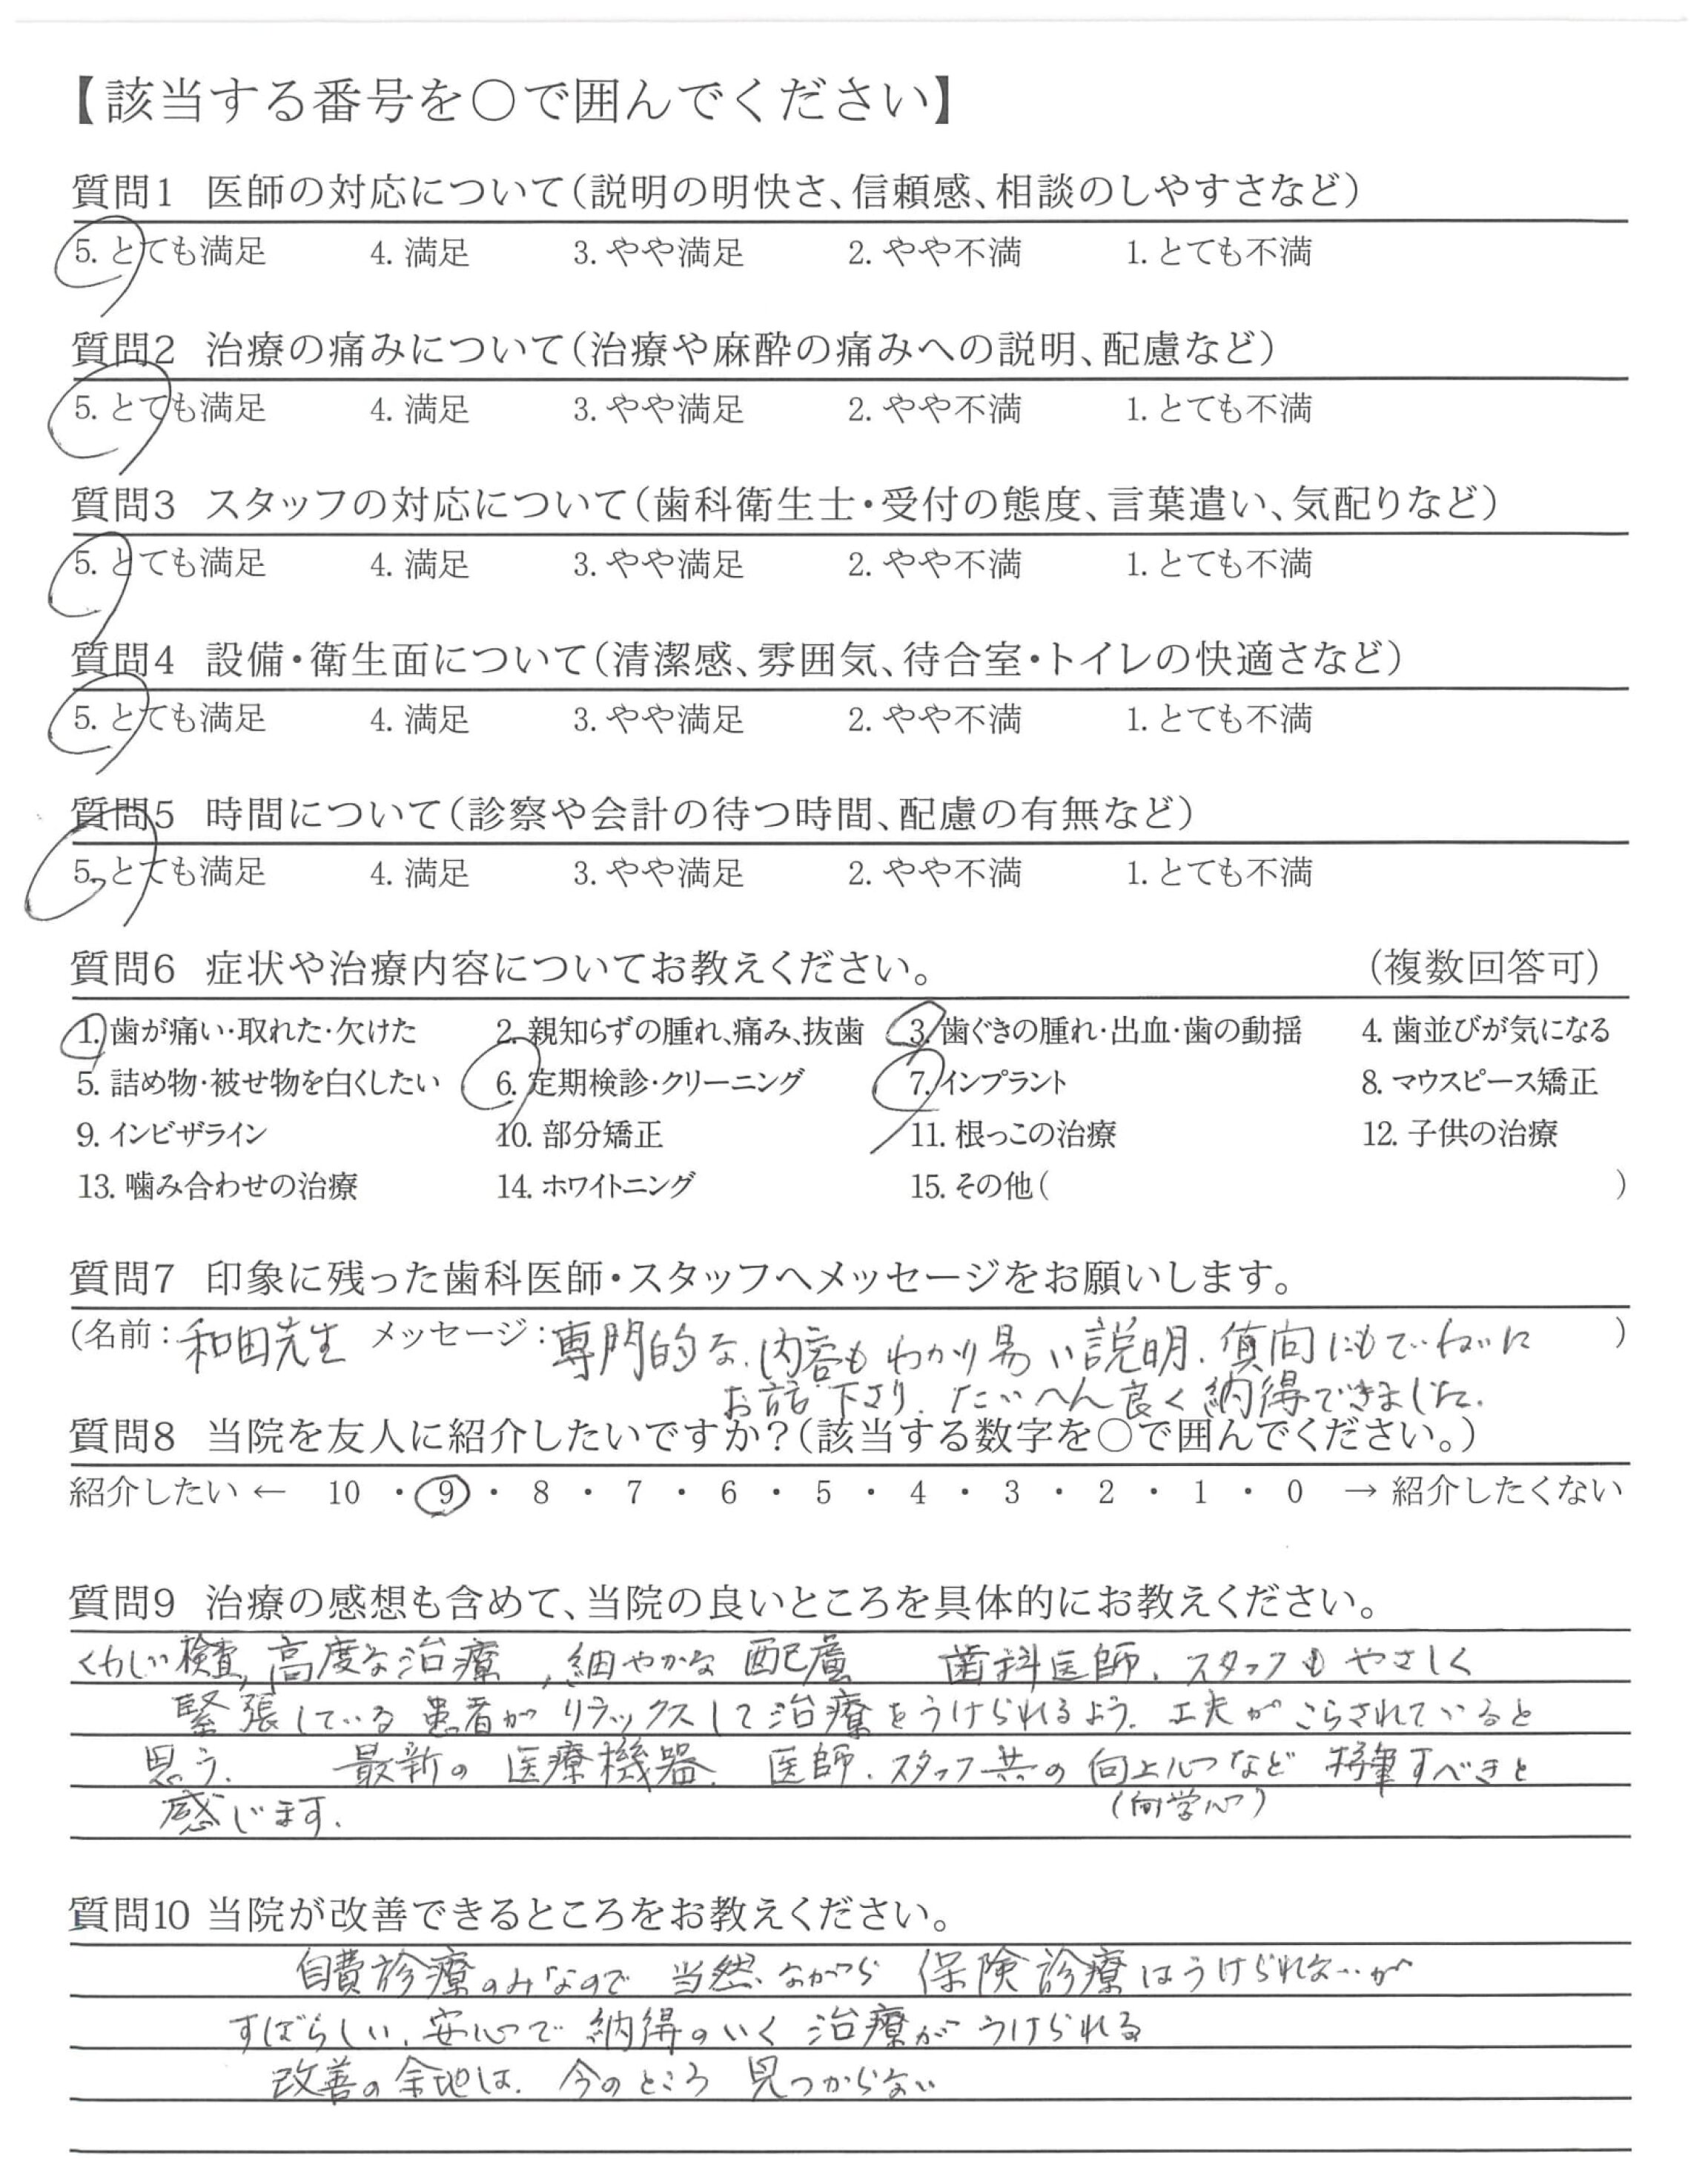 【該当する番号を〇で囲んでください】
質問1 医師の対応について(説明の明快さ、信頼感、相談のしやすさなど)
5. とても満足 4. 満足 3. やや満足 2. やや不満 1. とても不満
質問2 治療の痛みについて(治療や麻酔の痛みへの説明、配慮など)
5. とても満足 4. 満足 3. やや満足 2. やや不満 1. とても不満
質問3 スタッフの対応について(歯科衛生士・受付の態度、言葉遣い、気配りなど)
5. とても満足 4. 満足 3. やや満足 2. やや不満 1. とても不満
質問4 設備・衛生面について(清潔感、雰囲気、待合室・トイレの快適さなど)
5. とても満足 4. 満足 3. やや満足 2. やや不満 1. とても不満
質問5 時間について(診察や会計の待つ時間、配慮の有無など)
5. とても満足 4. 満足 3. やや満足 2. やや不満 1. とても不満
質問6 症状や治療内容についてお教えください。 (複数回答可)
1. 歯が痛い・取れた・欠けた 2. 親知らずの腫れ、痛み、抜歯 3. 歯ぐきの腫れ・出血・歯の動揺 4. 歯並びが気になる
5. 詰め物・被せ物を白くしたい 6. 定期検診・クリーニング 7. インプラント 8. マウスピース矯正
9. インビザライン 10. 部分矯正 11. 根っこの治療 12. 子供の治療
13. 噛み合わせの治療 14. ホワイトニング 15. その他( )
質問7 印象に残った歯科医師・スタッフへメッセージをお願いします。
(名前: 和田先生 メッセージ: 専門的な、内容もわかり易い説明、質問にもていねいに )
お話下さり、たいへん良く納得できました。
質問8 当院を友人に紹介したいですか?(該当する数字を〇で囲んでください。)
紹介したい ← 10 ・ 9 ・ 8 ・ 7 ・ 6 ・ 5 ・ 4 ・ 3 ・ 2 ・ 1 ・ 0 → 紹介したくない
質問9 治療の感想も含めて、当院の良いところを具体的にお教えください。
くわしい検査、高度な治療、細やかな配慮 歯科医師、スタッフもやさしく
緊張している患者がリラックスして治療をうけられるよう、工夫がこらされていると
思う。 最新の医療機器、医師、スタッフ共の向上心など 特筆すべきと
(向学心)
感じます。
質問10 当院が改善できるところをお教えください。
自費診療のみなので 当然ながら 保険診療はうけられないが
すばらしい、安心で納得のいく治療がうけられる
改善の余地は、今のところ 見つからない